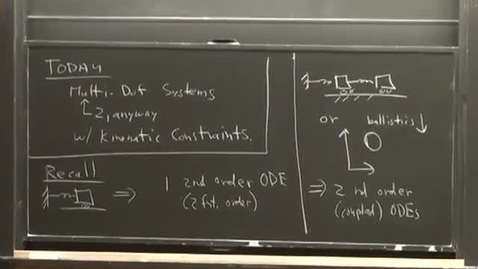 TODAY
Multi-Dof Systems
2, anyway
w/ Kinematic Constraints.
Recall
⇒ 1 2nd order ODE
(2 fst. order)
or ballistics ↓
⇒ 2 nd order
(coupled) ODEs